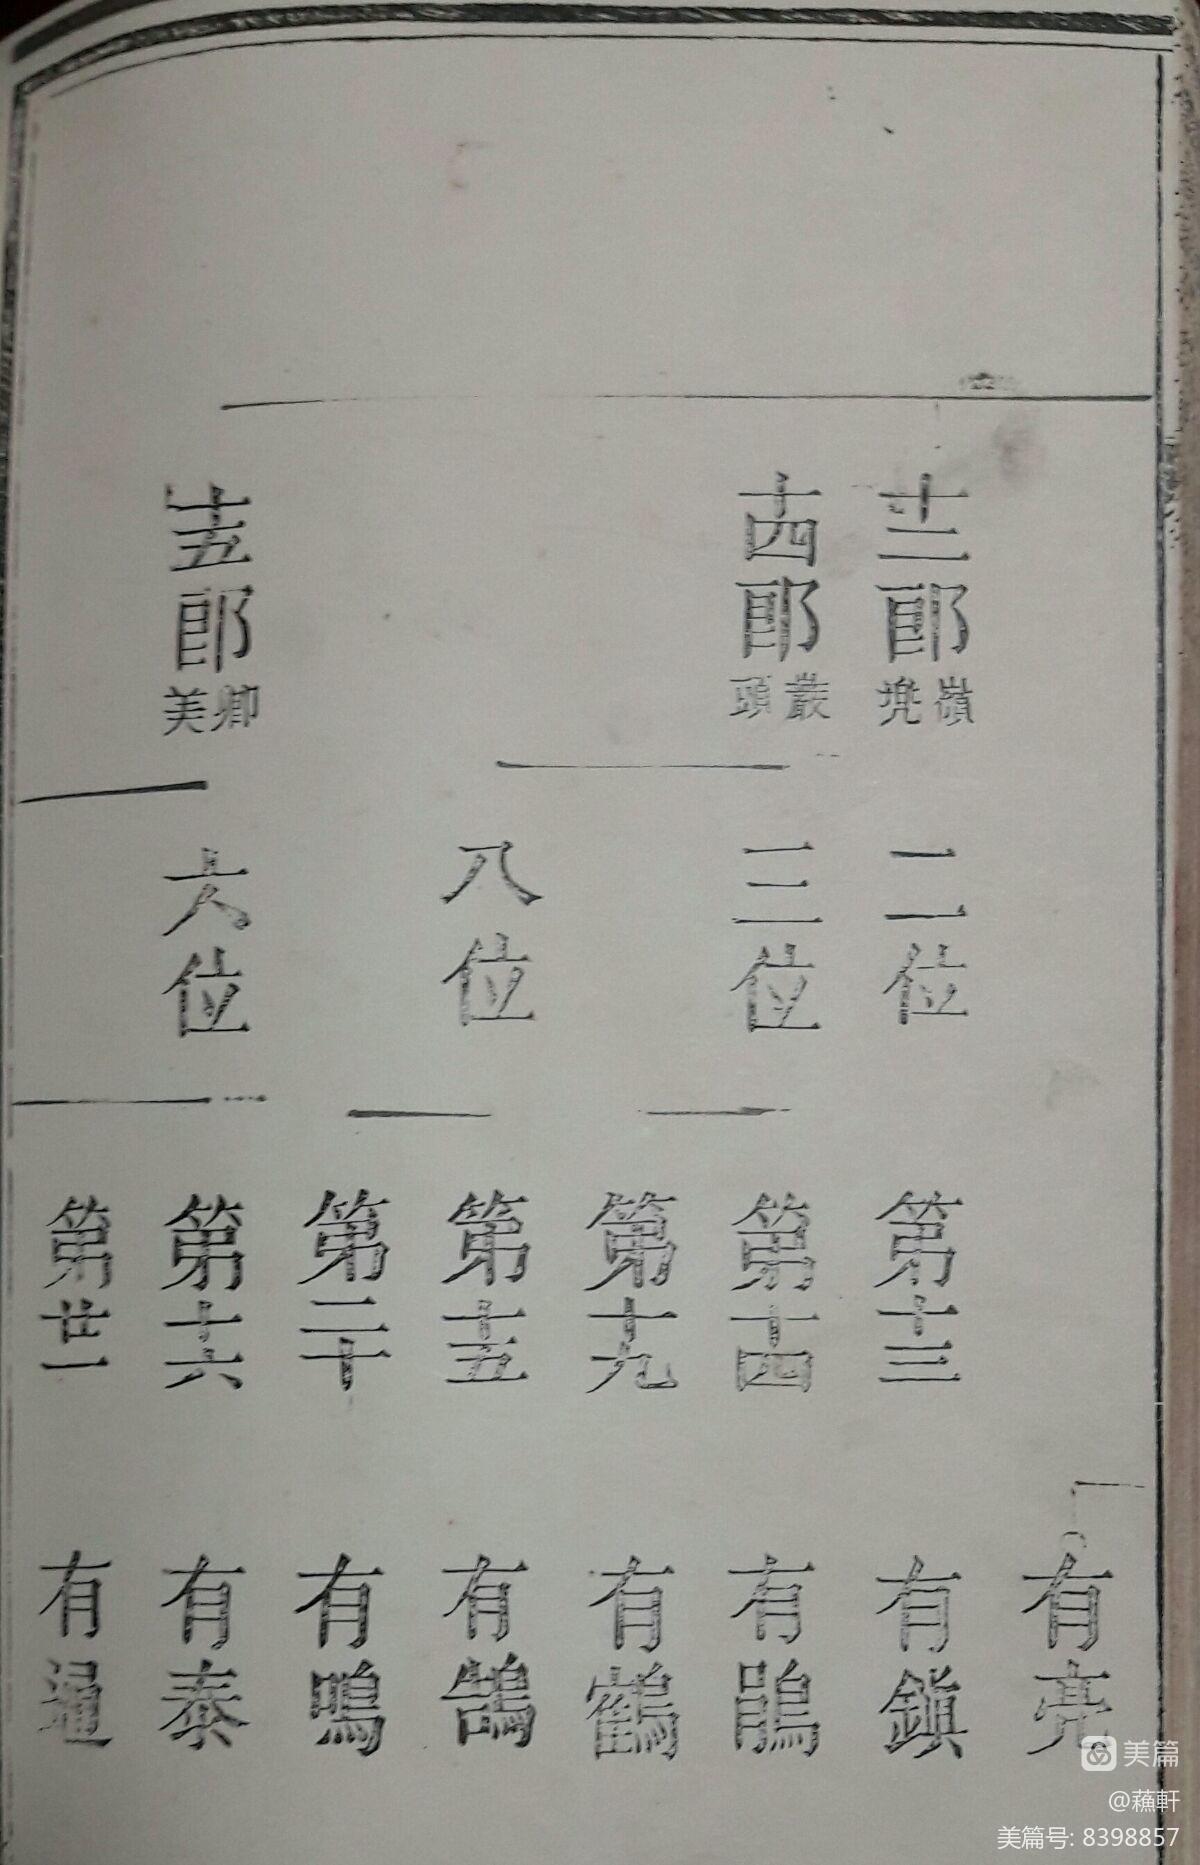 十二郎 嶺兠
十四郎 叢頭
十五郎 卿美
二位
三位
八位
六位
第十三
第十四
第十九
第十五
第二十
第十六
第廿一
有亮
有鎮
有鵑
有鶴
有鵠
有鳴
有泰
有
美篇
@蘸軒
美篇号: 8398857